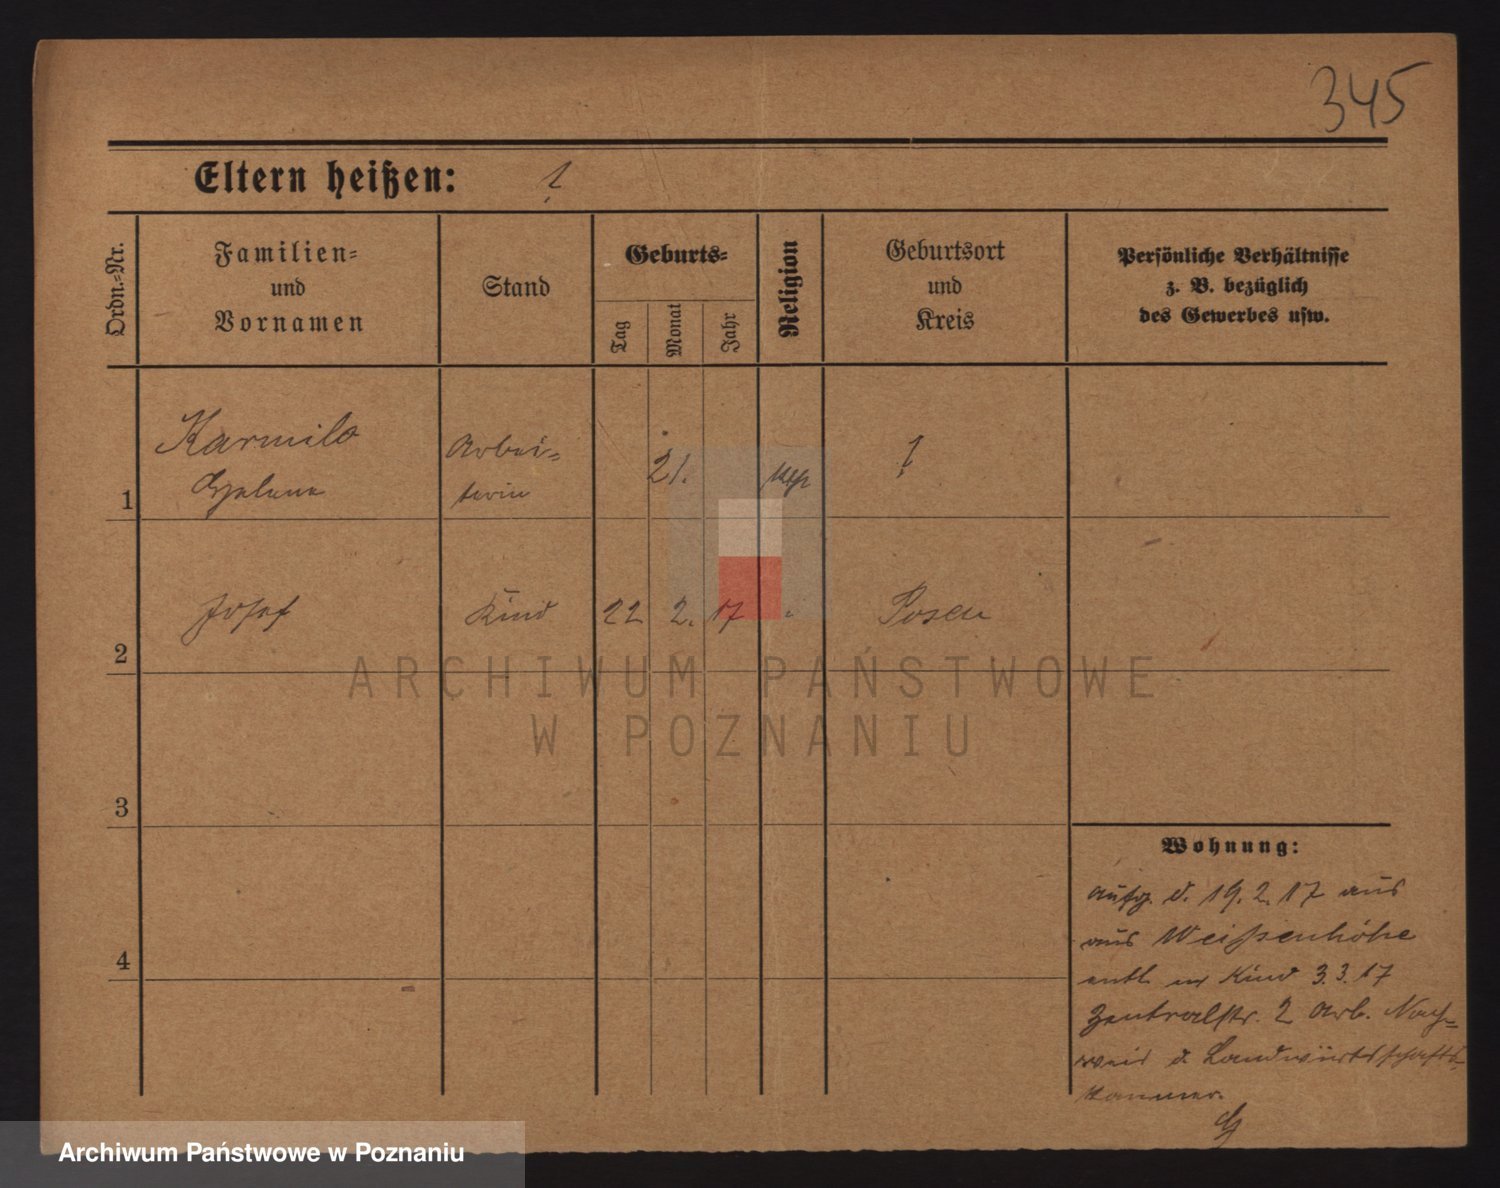 345
Eltern heißen: ?
Ordn.-Nr.
Familien-
und
Vornamen
Stand
Geburts-
Tag
Monat
Jahr
Religion
Geburtsort
und
Kreis
Persönliche Verhältnisse
z. B. bezüglich
des Gewerbes usw.
1
Karmilo
Helene
Arbei-
terin
21.
?
2
Josef
Kind
22
2.
17
"
Posen
3
4
Wohnung:
aufg. d. 19.2.17 aus
aus Weißenhöhe
entl m Kind 3.3.17
Zentralstr. 2 Arb. Nach-
weis d. Landwirtschafts-
kammer.
ARCHIWUM PAŃSTWOWE
W POZNANIU
Archiwum Państwowe w Poznaniu